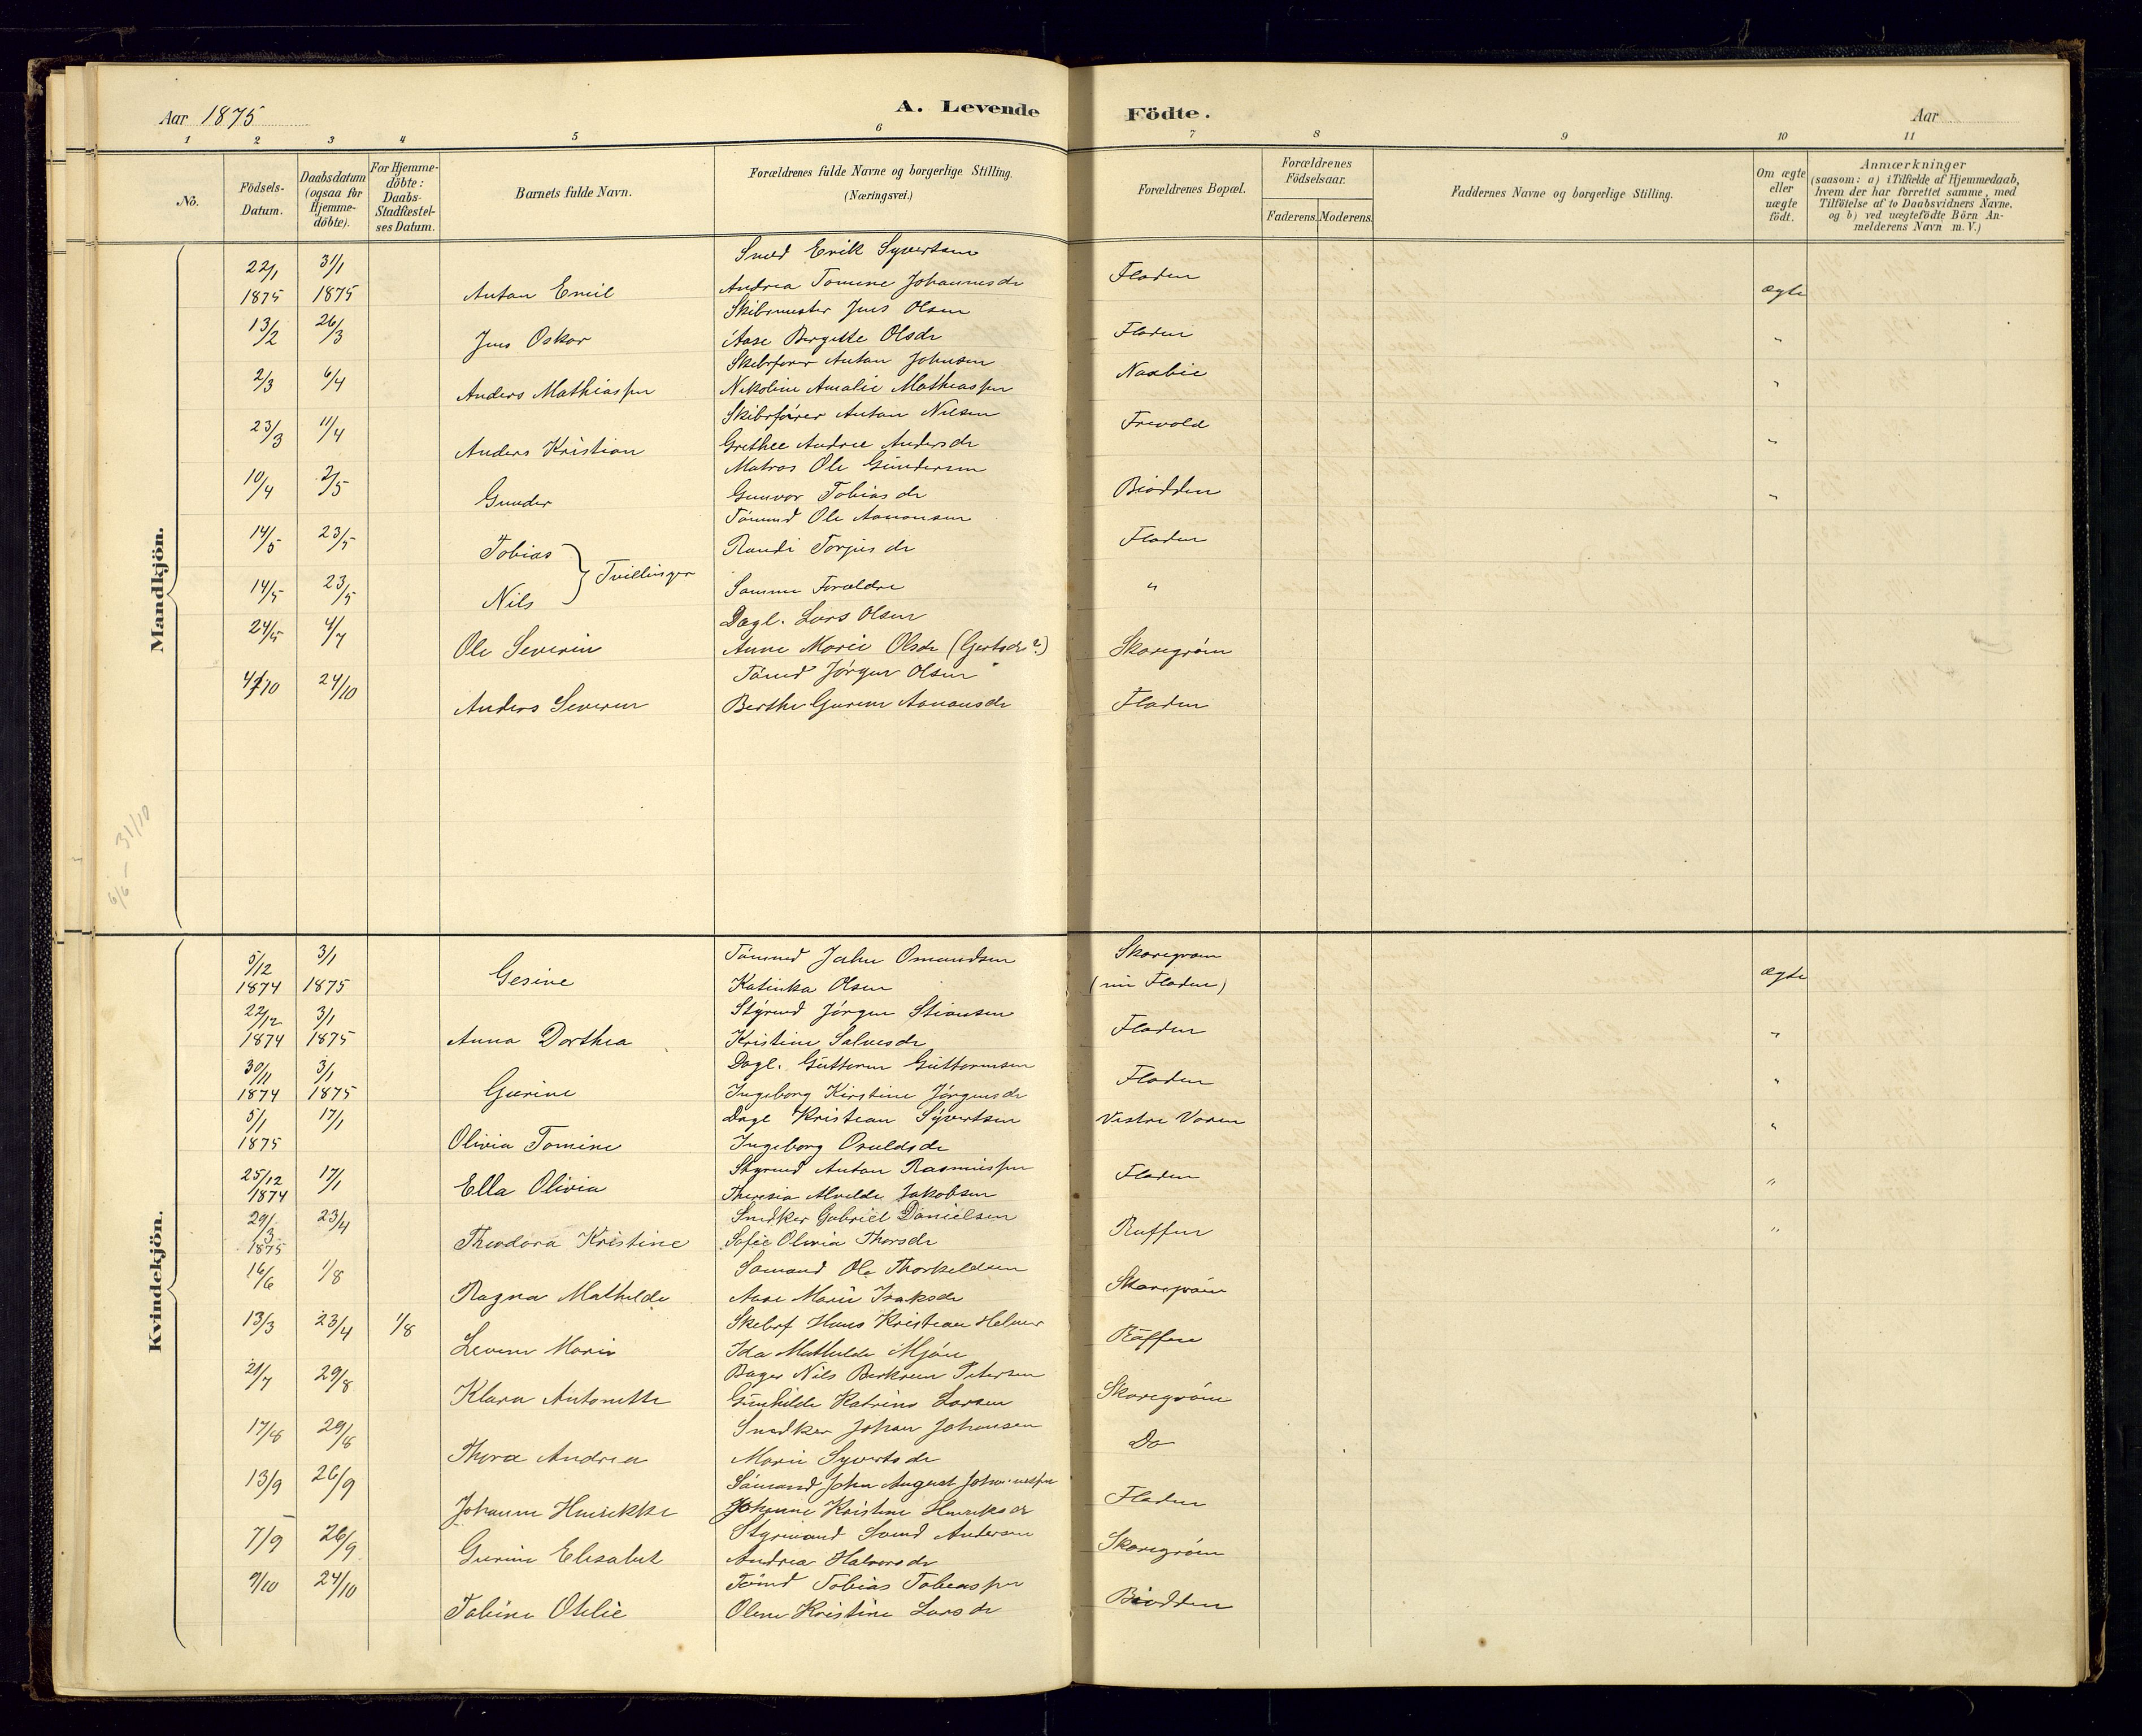 Aar 1875
A. Levende Födte.
Aar
1 2 3 4 5 6 7 8 9 10 11
No.
Födsels-Datum.
Daabsdatum (ogsaa for Hjemme-döbte).
For Hjemme-döbte: Daabs-Stadfæstel-ses Datum.
Barnets fulde Navn.
Forældrenes fulde Navne og borgerlige Stilling. (Næringsvei.)
Forældrenes Bopæl.
Forældrenes Födselsaar.
Faderens. Moderens.
Faddernes Navne og borgerlige Stilling.
Om ægte eller uægte födt.
Anmærkninger
(saasom: a) i Tilfælde af Hjemmedaab,
hvem der har forrettet samme, med
Tilföielse af to Daabsvidners Navne,
og b) ved uægtefödte Börn An-
melderens Navn m. V.)
Mandkjön.
Smed Erik Syvertsen
22/1 1875 31/1 1875 Anton Emil Andrea Tomine Johannesdr Fladen ægte
Skibsmester Jens Olsen
13/2 26/3 Jens Oskar Aase Bergitte Olsdr Fladen "
Skibsfører Anton Johnsen
2/3 6/4 Anders Mathiassen Nikoline Amalie Mathiassen Naxbie "
Skibsfører Anton Nilsen
23/3 11/4 Anders Kristian Grethee Andree Andersdr Frevold "
Matros Ole Gundersen
10/4 2/5 Gunder Gunvor Tobiasdr Biodden "
Tømmd Ole Aanonsen
14/5 23/5 Tobias } Tvillinger Randi Torjusdr Fladen
14/5 23/5 Nils Samme Forældre "
Dagl. Lars Olsen
24/5 4/7 Ole Severin Anne Marie Olsdr (Gertsdr?) Skaregrøm
Tømd Jørgen Olsen
4/10 24/10 Anders Severin Berthe Gurine Aanonsdr Fladen
6/6 - 31/10
Kvindekjön.
5/12 1874 3/1 1875 Gesine Tømmd Jahn Omundsen Skaregrøm
Katinka Olsen (nu Fladen) ægte
Styrmd Jörgen Stiansen
22/12 1874 3/1 1875 Anna Dorthea Kristine Salvesdr Fladen "
Dagl. Guttorm Guttormsen
30/11 1874 3/1 1875 Gurine Ingeborg Kirstine Jörgensdr Fladen "
Dagl Kristian Syvertsen Vestre Voren "
5/1 1875 17/1 Olivia Tomine Ingeborg Osuldsdr
Styrmd Anton Rasmussen
25/12 1874 17/1 Ella Olivia Theresia Alvilde Jakobsen Fladen "
Snedker Gabriel Danielsen
29/3 1875 23/4 Theodora Kristine Sofie Olivia Thorsdr Raffen "
Sømand Ole Thorkeldsen
16/6 1/8 Ragna Mathilde Aase Marie Isaksdr Skaregrøm
Skibsf Hans Kristian Helmer
13/3 23/4 1/8 Levine Marie Ida Mathilde Mjön Raffen
Bager Nils Berkreim Petersen
21/7 29/8 Klara Antonette Gunhilde Katrine Larsen Skaregrøm
Snedker Johan Johansen
17/8 29/8 Thora Andrea Marie Syvertsdr Do
Sømand John August Johannessen
13/9 26/9 Johanne Henrikke Johanne Kristine Henriksdr Fladen
Styrmand Svend Andersen
7/9 26/9 Gurine Elisabet Andrea Halvorsdr Skaregrøm
Tømd Tobias Tobiassen
9/10 24/10 Tobine Otilie Oline Kristine Larsdr Biodden